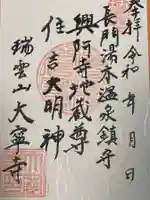 奉拝 令和 年 月 日
長門湯本温泉鎮守
興阿寺地蔵尊
住吉大明神
瑞雲山大寧寺